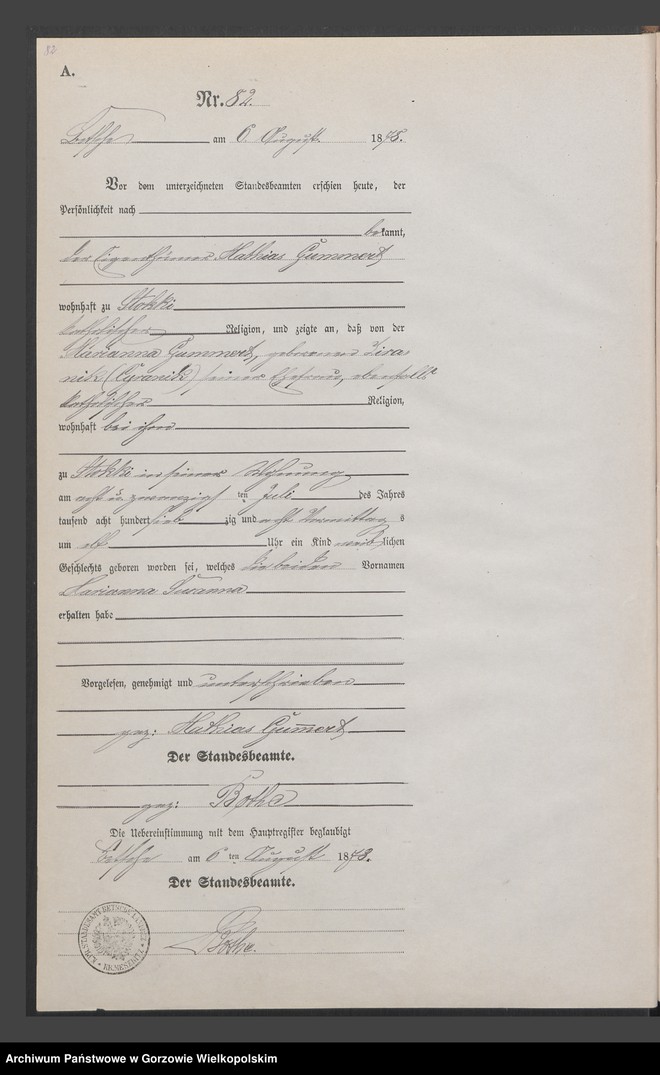 82
A.
Nr. 82.
Betsche am 6 August 1878.
Vor dem unterzeichneten Standesbeamten erschien heute, der
Persönlichkeit nach
bekannt,
der Eigenthümer Mathias Gummert
wohnhaft zu Stokki
katholischer Religion, und zeigte an, daß von der
Marianna Gummert, geborenen Zira
nik (Cyranik) seiner Ehefrau, ebenfalls
katholischer Religion,
wohnhaft bei ihm
zu Stokki in seiner Wohnung
am acht u. zwanzigsten Juli des Jahres
tausend acht hundert siebzig und acht Vormittags
um elf Uhr ein Kind weiblichen
Geschlechts geboren worden sei, welches die beiden Vornamen
Marianna Susanna
erhalten habe
Vorgelesen, genehmigt und unterschrieben
gez: Mathias Gummert
Der Standesbeamte.
gez: Bothe
Die Uebereinstimmung mit dem Hauptregister beglaubigt
Betsche am 6ten August 1878.
Der Standesbeamte.
Bothe.
Archiwum Państwowe w Gorzowie Wielkopolskim